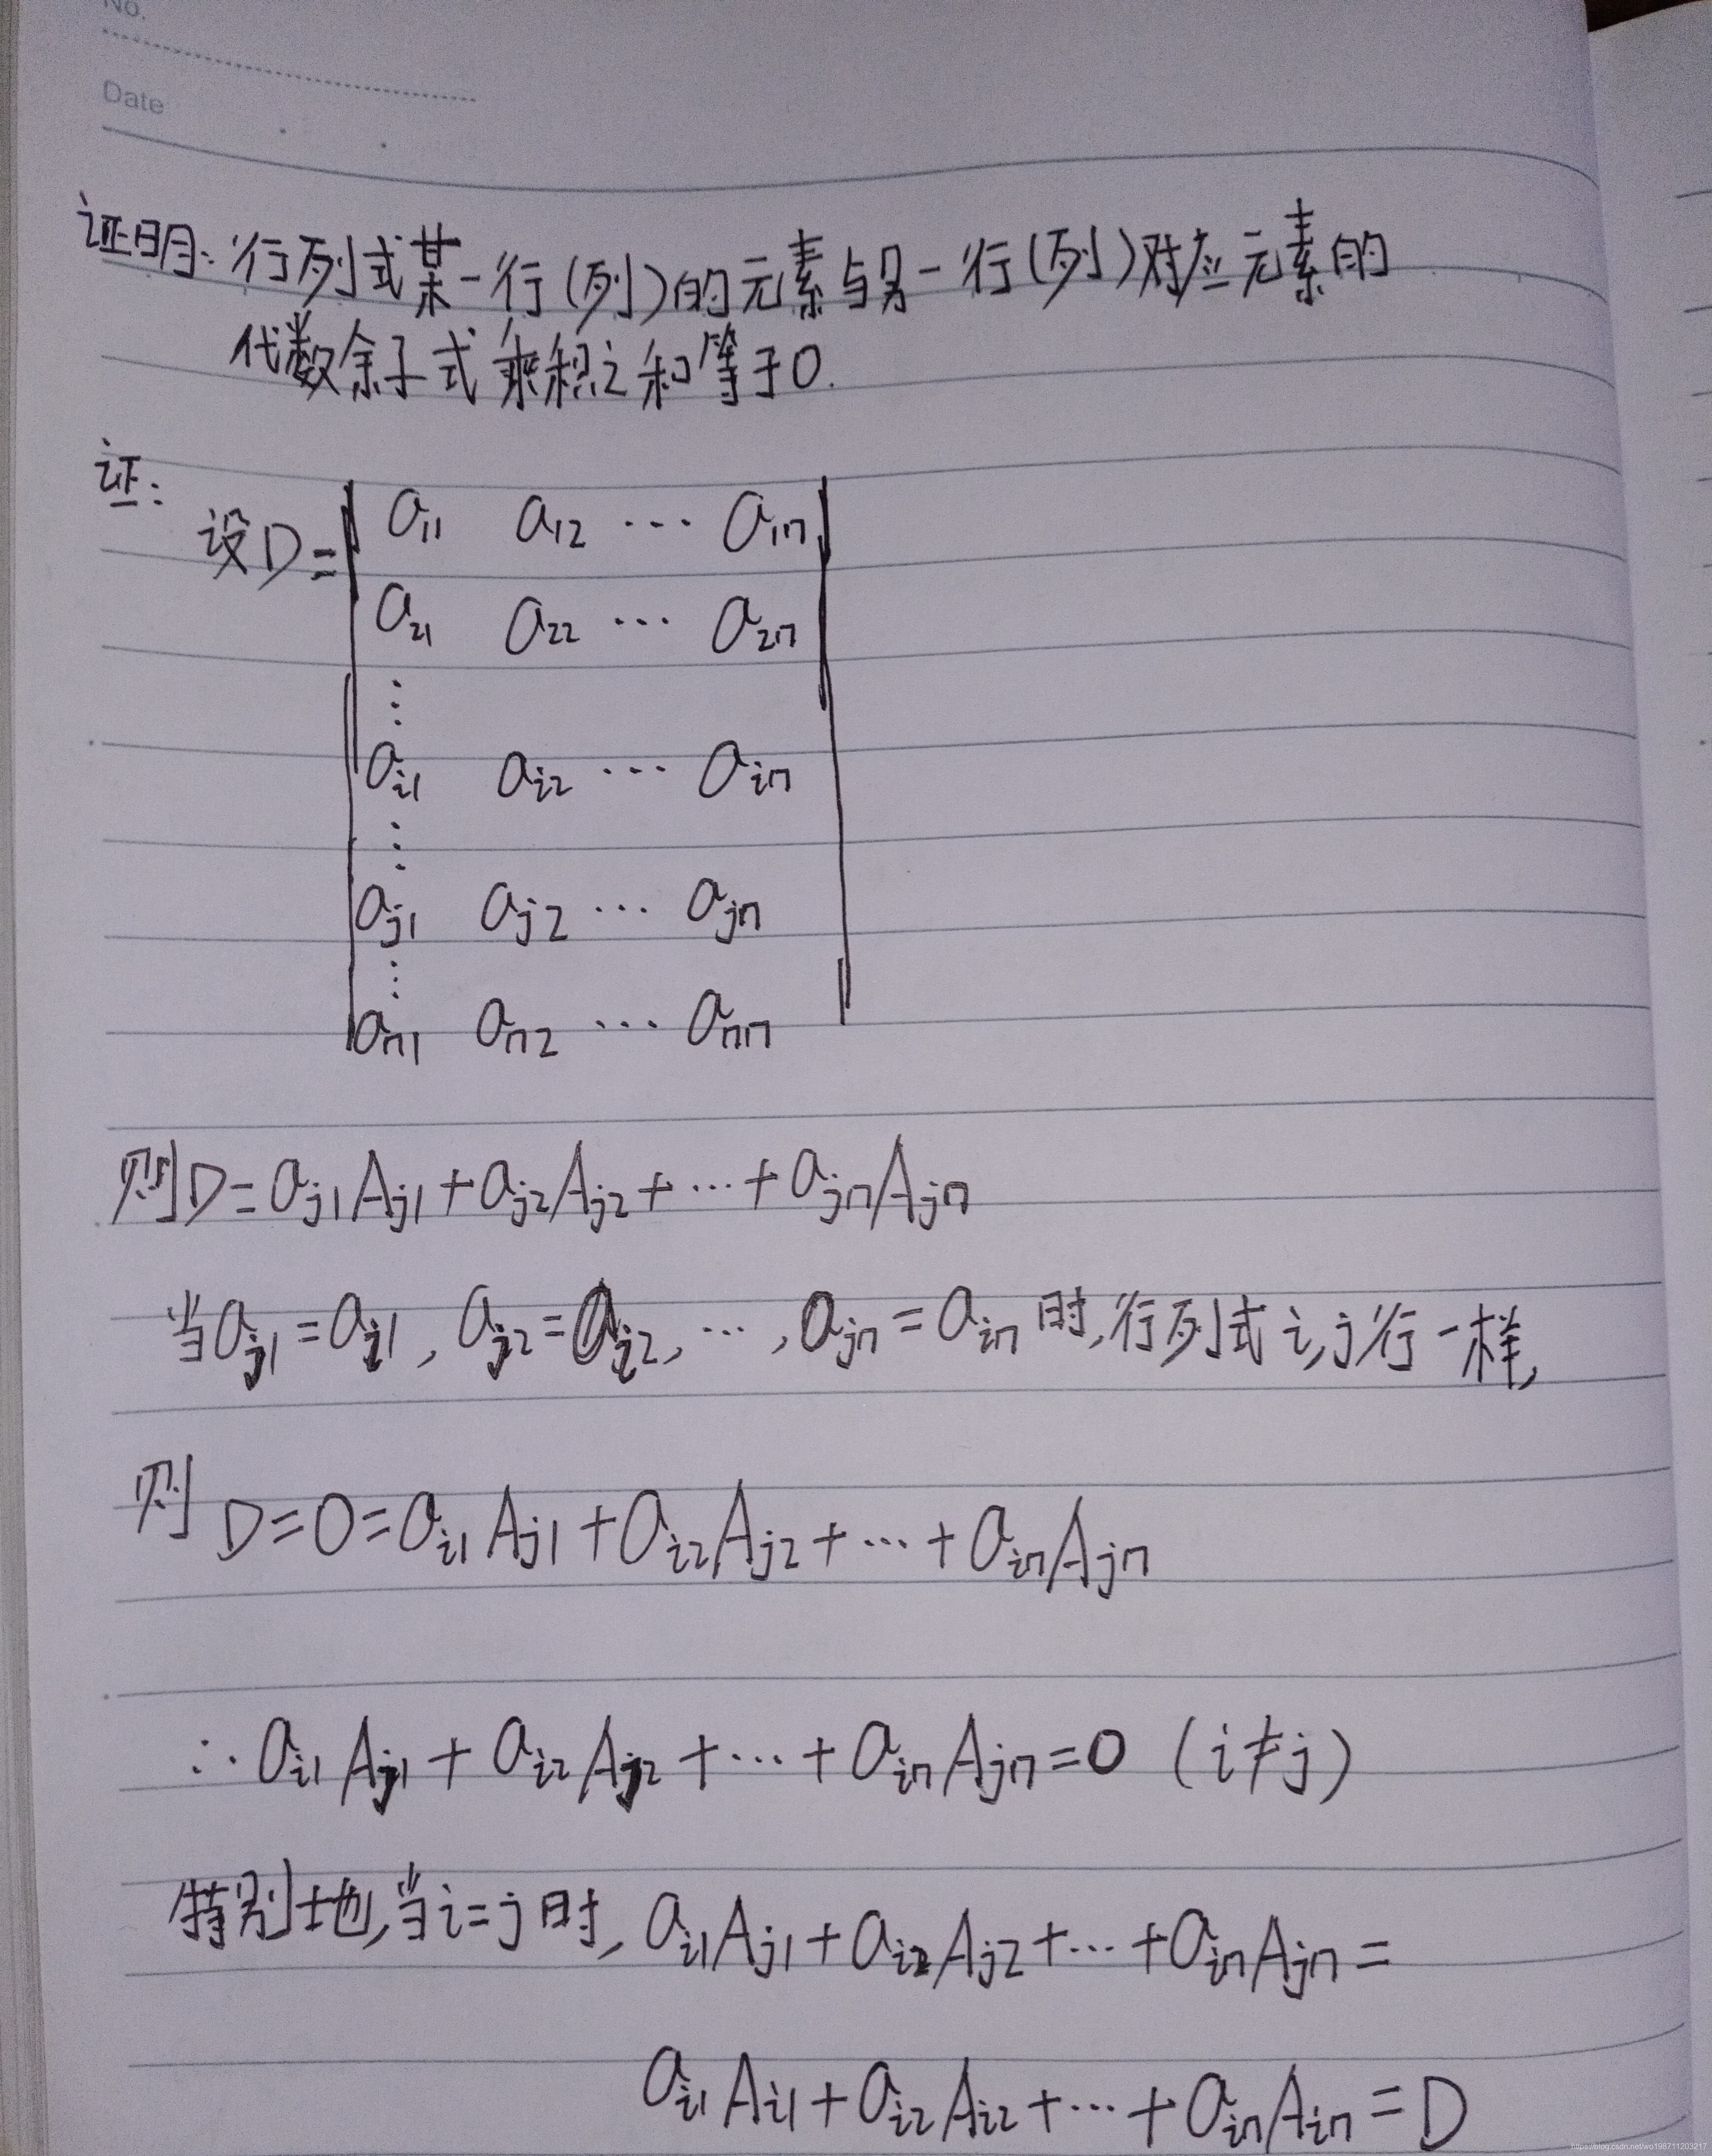 No.
Date
证明:行列式某一行(列)的元素与另一行(列)对应元素的
代数余子式乘积之和等于0.
证:
设D=
a₁₁ a₁₂ ⋯ a₁ₙ
a₂₁ a₂₂ ⋯ a₂ₙ
⋮
aᵢ₁ aᵢ₂ ⋯ aᵢₙ
⋮
aⱼ₁ aⱼ₂ ⋯ aⱼₙ
⋮
aₙ₁ aₙ₂ ⋯ aₙₙ
则D=aⱼ₁Aⱼ₁+aⱼ₂Aⱼ₂+⋯+aⱼₙAⱼₙ
当aⱼ₁=aᵢ₁,aⱼ₂=aᵢ₂,⋯,aⱼₙ=aᵢₙ时,行列式i,j行一样,
则D=0=aᵢ₁Aⱼ₁+aᵢ₂Aⱼ₂+⋯+aᵢₙAⱼₙ
∴aᵢ₁Aⱼ₁+aᵢ₂Aⱼ₂+⋯+aᵢₙAⱼₙ=0 (i≠j)
特别地,当i=j时,aᵢ₁Aⱼ₁+aᵢ₂Aⱼ₂+⋯+aᵢₙAⱼₙ=
aᵢ₁Aᵢ₁+aᵢ₂Aᵢ₂+⋯+aᵢₙAᵢₙ=D
https://blog.csdn.net/wo198711203217